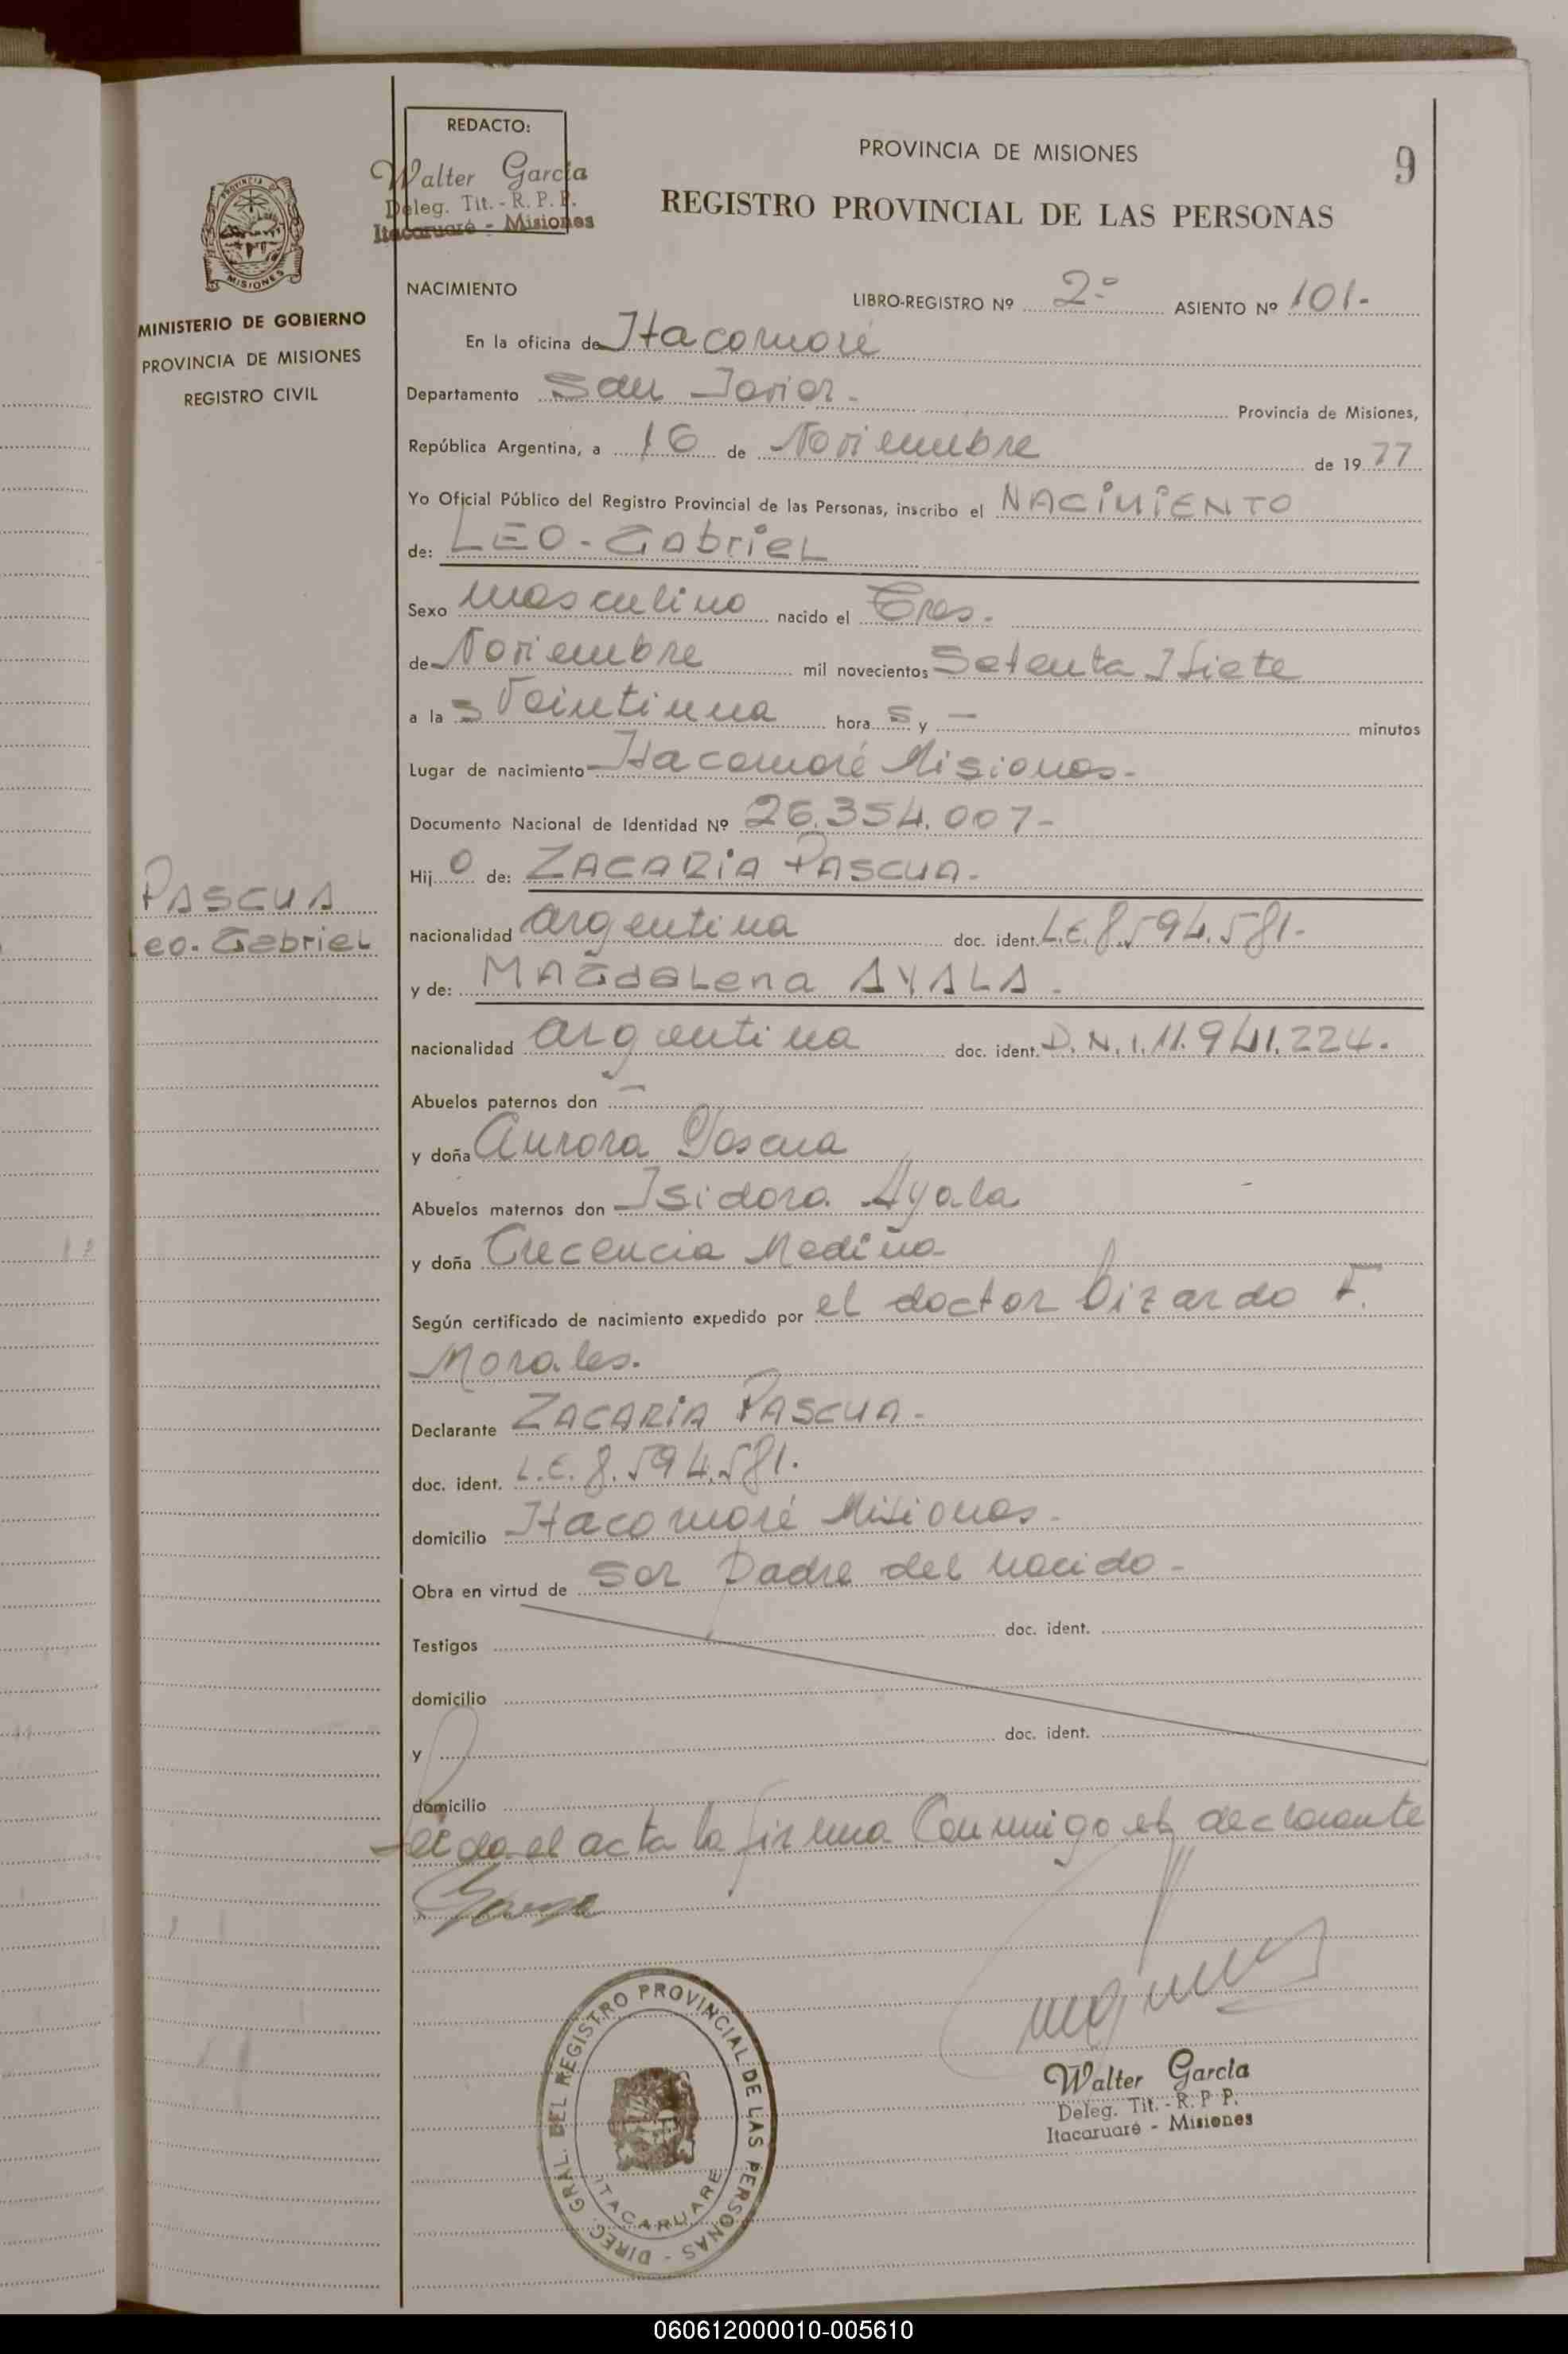 REDACTO:
Walter García
Deleg. Tit. - R. P. P.
Itacaruaré - Misiones
PROVINCIA DE MISIONES
9
REGISTRO PROVINCIAL DE LAS PERSONAS
PROVINCIA
MISIONES
MINISTERIO DE GOBIERNO
PROVINCIA DE MISIONES
REGISTRO CIVIL
NACIMIENTO
LIBRO-REGISTRO Nº 2º ASIENTO Nº 101.-
En la oficina de Itacaruaré
Departamento San Javier.- Provincia de Misiones,
República Argentina, a 16 de Noviembre de 1977
Yo Oficial Público del Registro Provincial de las Personas, inscribo el NACIMIENTO
de: LEO-GabrieL
Sexo masculino nacido el Tres.-
de Noviembre mil novecientos Setenta y siete
a la s Veintiuna hora s y — minutos
Lugar de nacimiento Itacaruaré Misiones-
Documento Nacional de Identidad Nº 26.354.007-
Hij o de: ZACARIA PASCUA.-
PASCUA
Leo-GabrieL
nacionalidad argentina doc. ident. L.E. 8.594.581.-
y de: MAGdaLena AYALA.-
nacionalidad argentina doc. ident. D.N.I. 11.941.224.-
Abuelos paternos don —
y doña Aurora Pascua
Abuelos maternos don Isidoro Ayala
y doña Crecencia Medina
Según certificado de nacimiento expedido por el doctor Lizardo F.
Morales.
Declarante ZACARIA PASCUA.-
doc. ident. L.E. 8.594.581.
domicilio Itacaruaré Misiones.-
Obra en virtud de ser padre del nacido.-
Testigos doc. ident.
domicilio
y doc. ident.
domicilio
Leida el acta la firma conmigo el declarante
DIREC. GRAL. DEL REGISTRO PROVINCIAL DE LAS PERSONAS -
ITACARUARE
Walter García
Deleg. Tit. - R. P. P.
Itacaruaré - Misiones
060612000010-005610